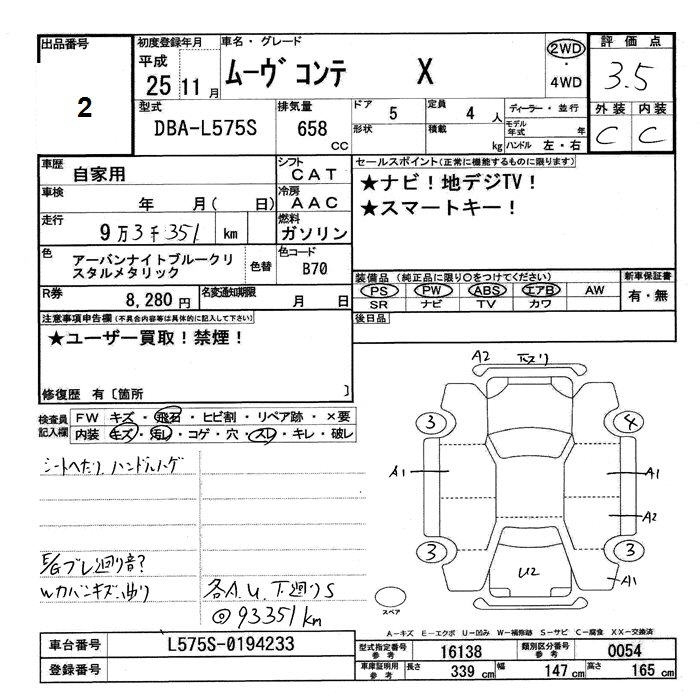 出品番号
2
初度登録年月
平成
25 11月
車名・グレード
ムーヴ コンテ X
2WD
・
4WD
評価点
3.5
外装 内装
C C
型式
DBA-L575S
排気量
658 cc
ドア 5
形状
定員 4 人
積載 kg
ディーラー・並行
モデル年式 年
ハンドル 左・右
車歴
自家用
シフト
CAT
車検
年 月( 日)
冷房
AAC
走行
9万3千351 km
燃料
ガソリン
色
アーバンナイトブルークリスタルメタリック
色替
色コード
B70
R券
8,280円
名変通知期限
月 日
セールスポイント(正常に機能するものに限ります)
★ナビ!地デジTV!
★スマートキー!
装備品 (純正品に限り○をつけてください)
PS PW ABS エアB AW
SR ナビ TV カワ
新車保証書
有・無
後日品
注意事項申告欄(不具合内容等は具体的に記入して下さい)
★ユーザー買取!禁煙!
修復歴 有〔箇所 〕
検査員記入欄
FW キズ・飛石・ヒビ割・リペア跡・×要
内装 キズ・汚レ・コゲ・穴・スレ・キレ・破レ
シートへたり、ハンドルハゲ
E/Gブレ廻り音?
Wカバーキズ、曲り
各A.U.下廻りS
◎93351km
A2 下スリ
3 4
A1 A1
A2
3 3
U2
A1
スペア
A-キズ E-エクボ U-凹み W-補修跡 S-サビ C-腐食 XX-交換済
車台番号 L575S-0194233
登録番号
型式指定番号 参考 16138
類別区分番号 参考 0054
車庫証明用 参考 長さ 339 cm 幅 147 cm 高さ 165 cm